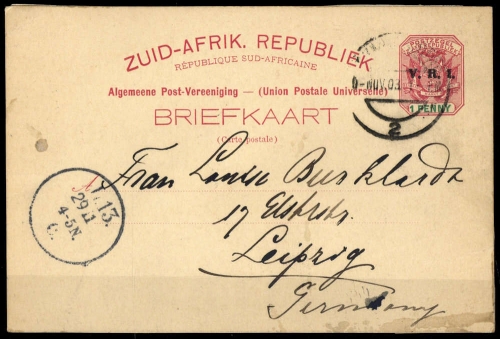 ZUID-AFRIK. REPUBLIEK
RÉPUBLIQUE SUD-AFRICAINE
Algemeene Post-Vereeniging — (Union Postale Universelle)
BRIEFKAART
(Carte postale)
POSTZEGEL
V. R. I.
1 PENNY
NOV. 03
2
L. 13.
29 11
4-5 N.
Frau Louise Burkhardt
17 Elsterstr.
Leipzig
Germany